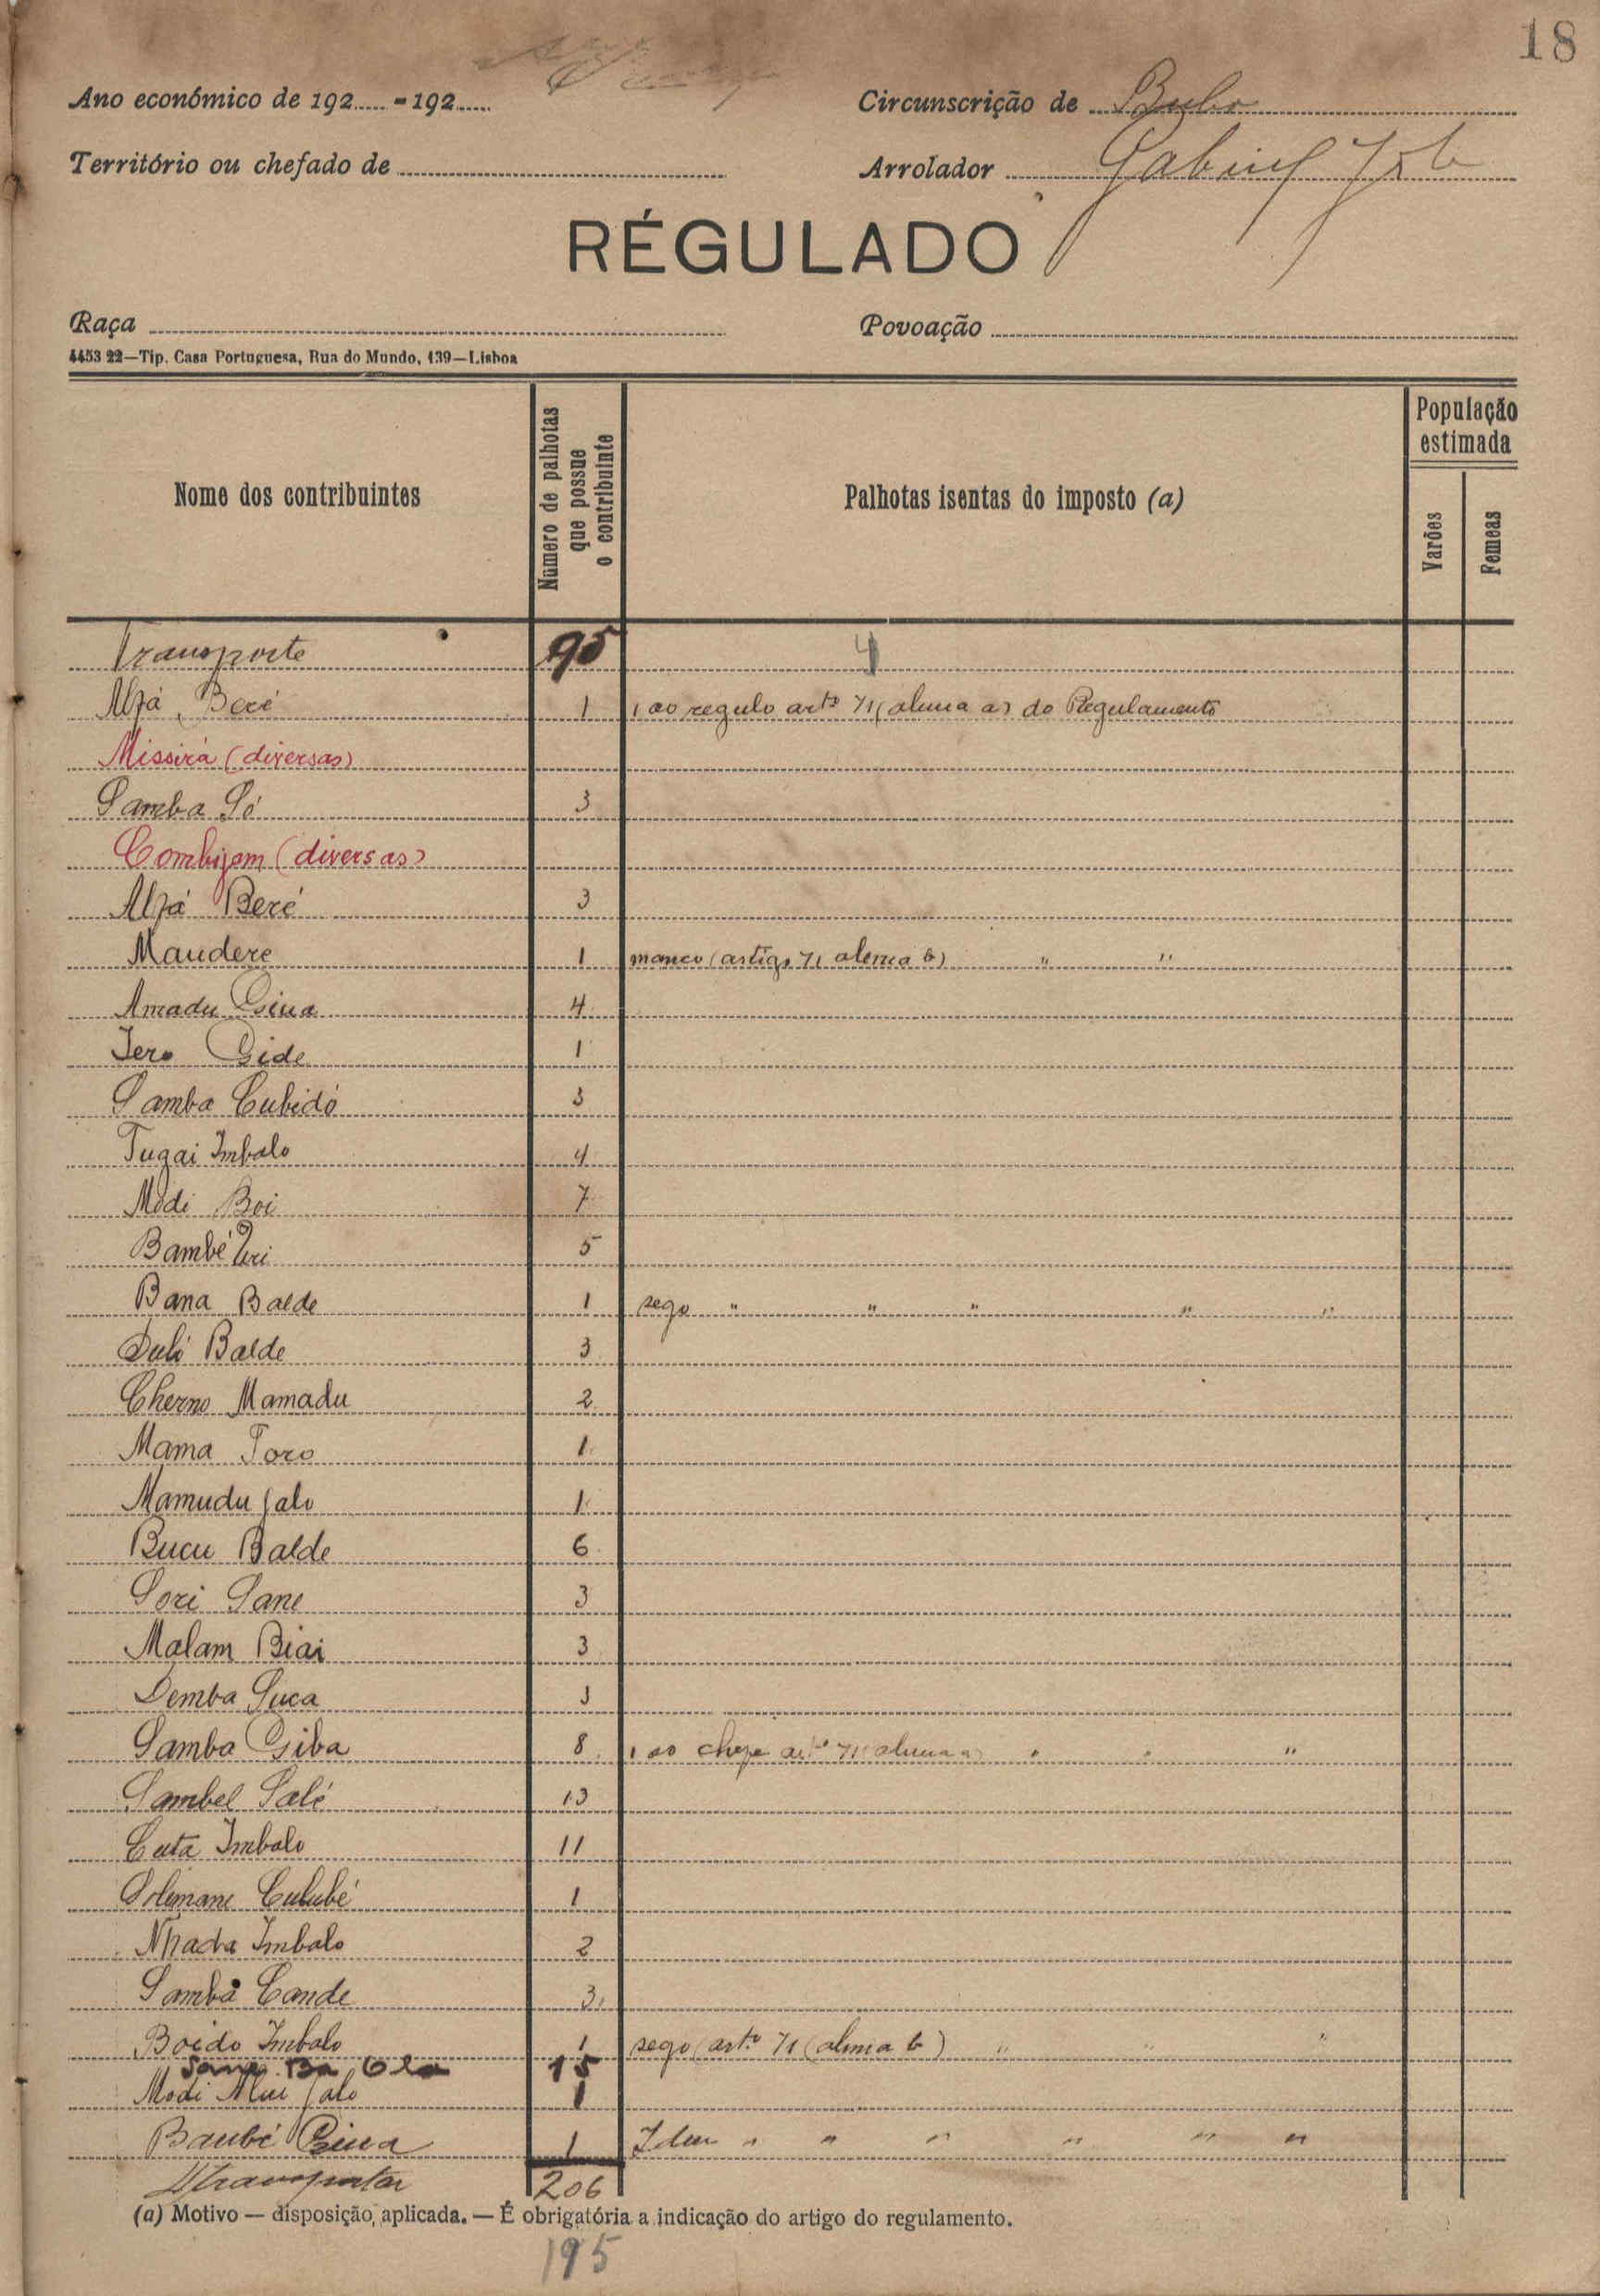 18
Ano económico de 192..... - 192.....
Circunscrição de Bubo
Território ou chefado de
Arrolador Gabriel
RÉGULADO
Raça
Povoação
4453 22—Tip. Casa Portuguesa, Rua do Mundo, 139—Lisboa
Nome dos contribuintes
Número de palhotas que possue o contribuinte
Palhotas isentas do imposto (a)
População estimada
Varões
Femeas
Transporte 95 4
Alfá Beré 1 1 ao regulo artº 71 (alinea a) do Regulamento
Missirá (diversas)
Samba Só 3
Combijam (diversas)
Alfá Beré 3
Maudere 1 manco (artigo 71 alenea b) " "
Amadu Giua 4
Iero Gide 1
Samba Cubidó 3
Tugai Imbalo 4
Modi Boi 7
Bambé Uri 5
Bana Balde 1 sego " " " " "
Duli Balde 3
Cherno Mamadu 2
Mama Toro 1
Mamudu Jalo 1
Bucu Balde 6
Sori Sane 3
Malam Biai 3
Demba Suca 3
Samba Giba 8 1 ao chefe artº 71 alinea a) " " "
Sambel Salé 13
Cuta Imbalo 11
Solimane Culubé 1
Nhada Imbalo 2
Samba Cande 3
Boido Imbalo 1 sego (artº 71 (alinea b) " " "
Sane Ba Ola 15
Modi Aliu Jalo 1
Baubé Giua 1 Idem " " " " " "
A transportar 206
(a) Motivo — disposição, aplicada. — É obrigatória a indicação do artigo do regulamento.
195